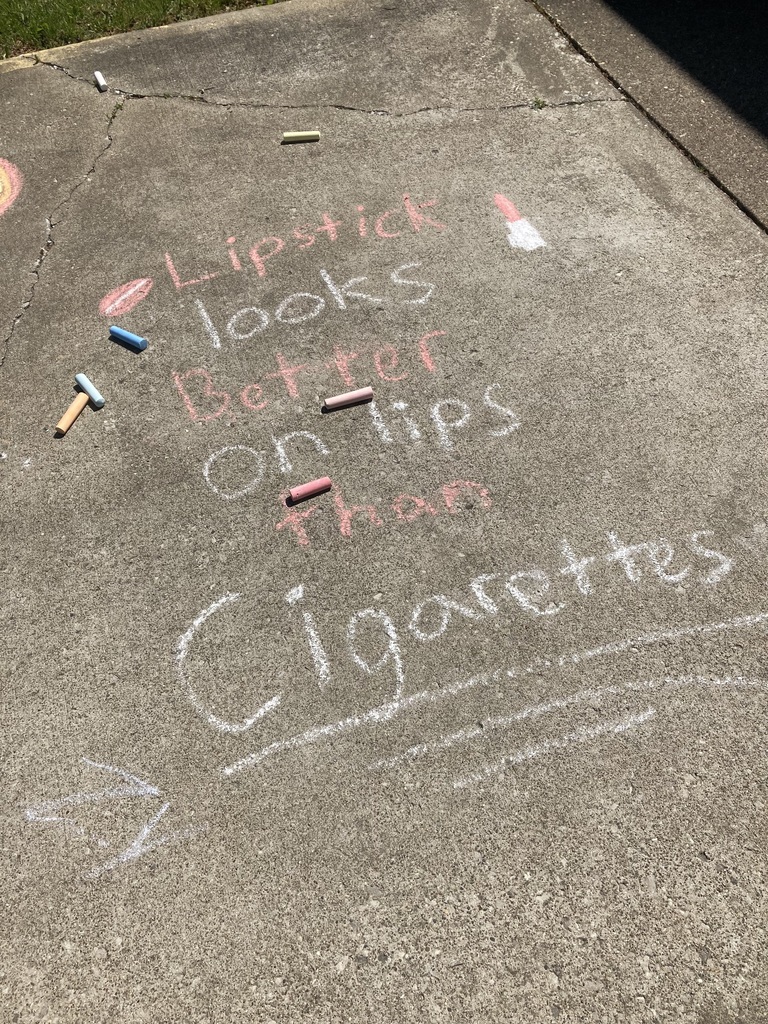 Lipstick
looks
Better
on lips
than
Cigarettes